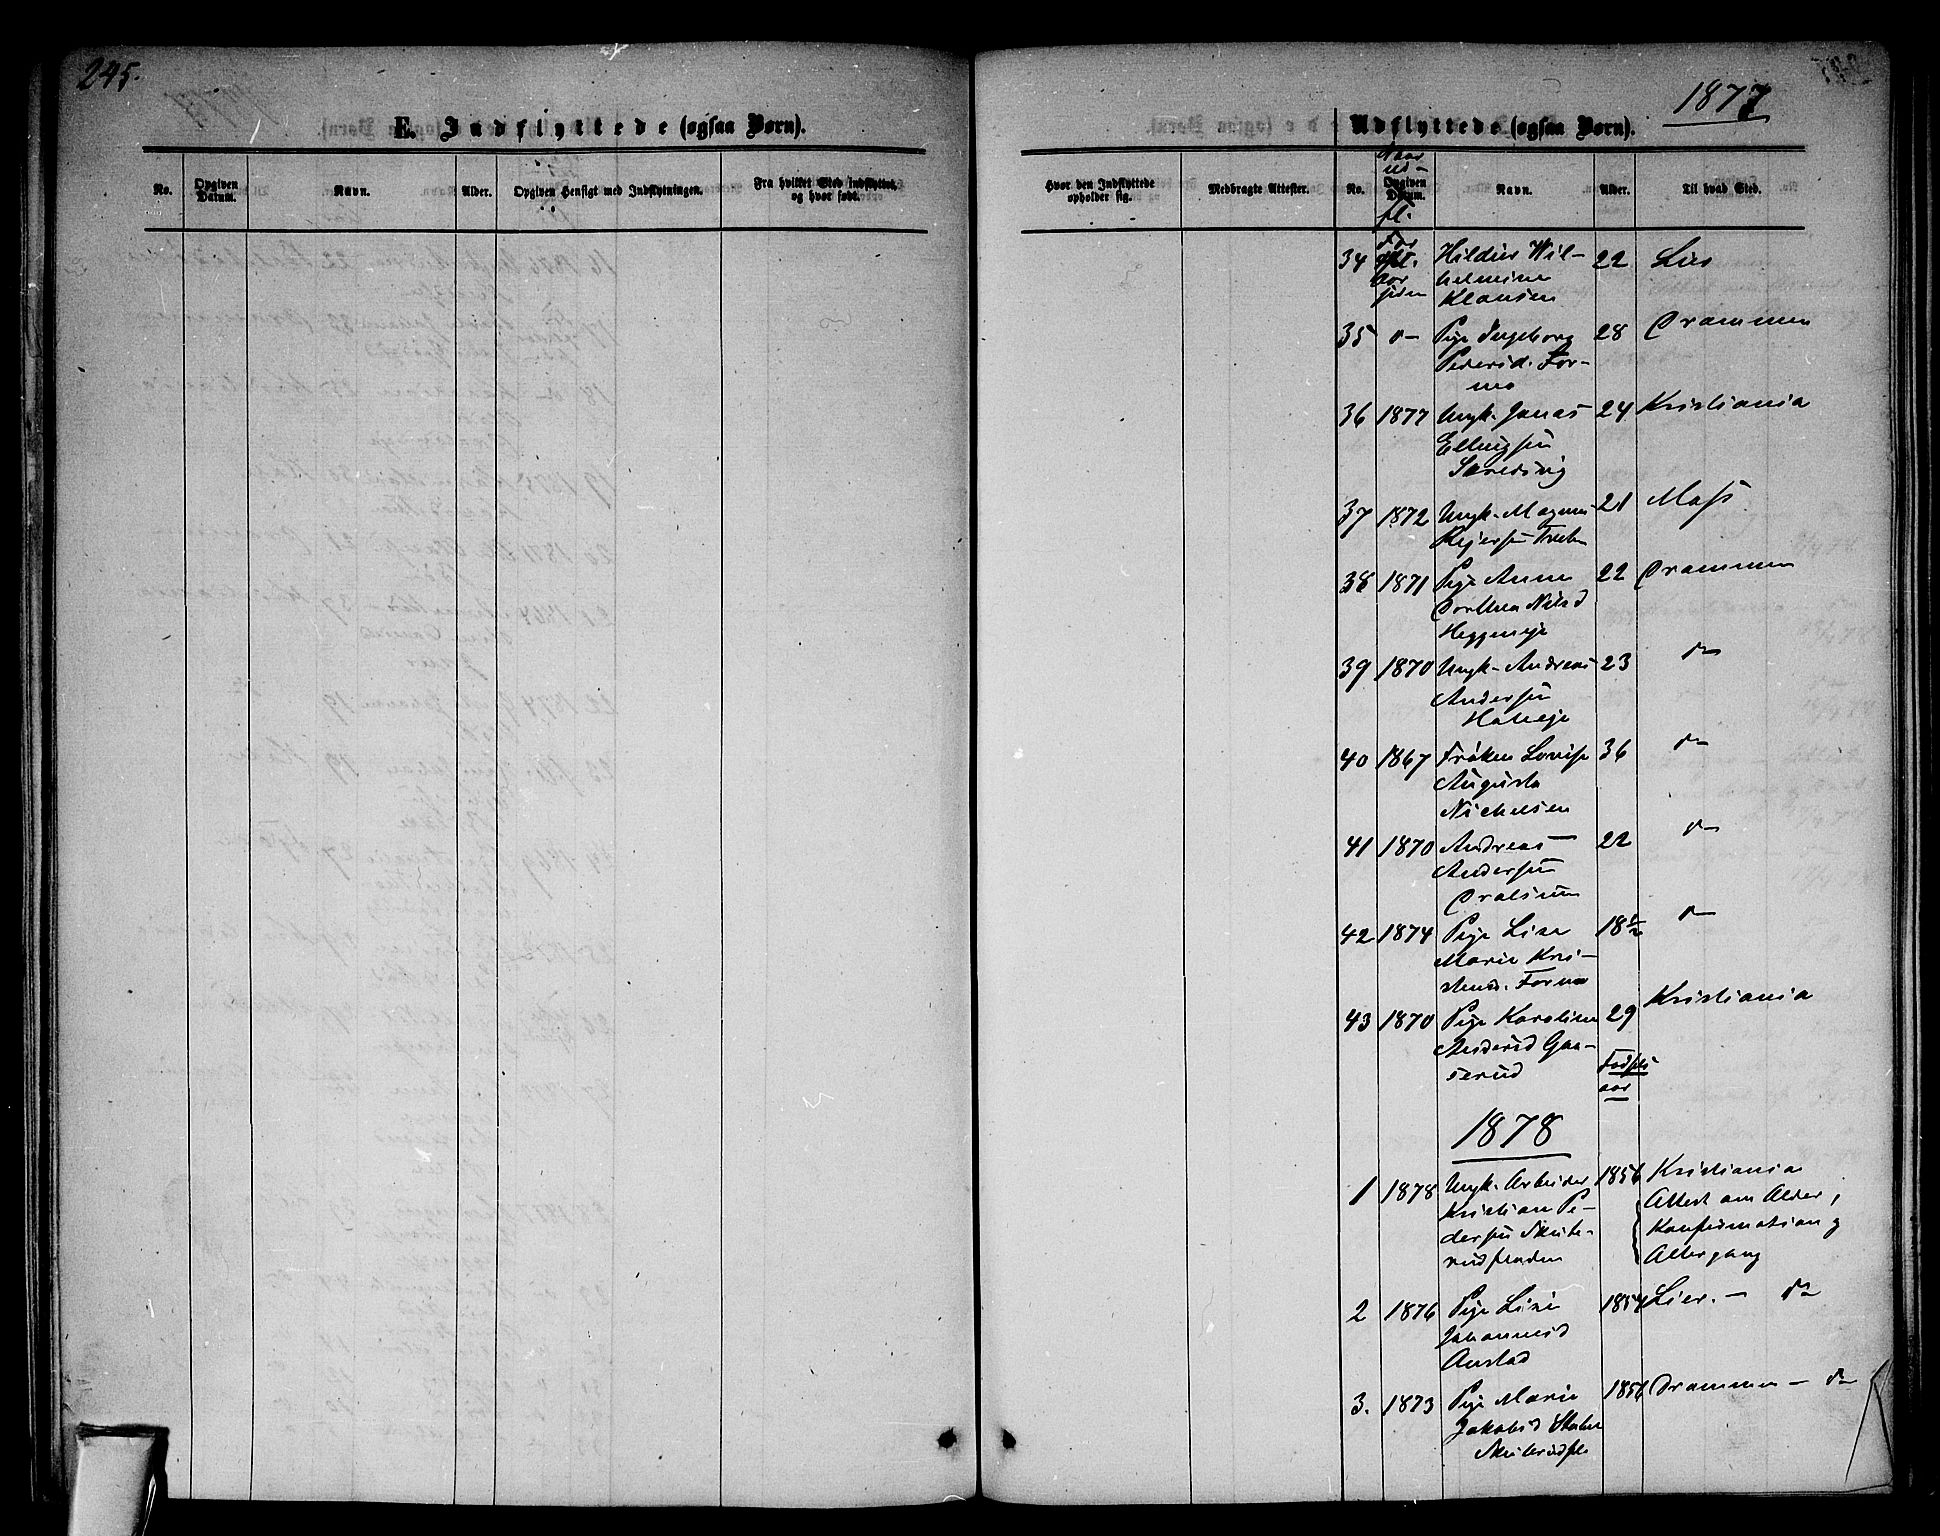 245.
1877
E. Indflyttede (ogsaa Børn).
Udflyttede (ogsaa Børn).
No.
Opgiven Datum.
Navn.
Alder.
Opgiven Hensigt med Indflytningen.
Fra hvilket Sted indflyttet, og hvor født.
Hvor den Indflyttede opholder sig.
Medbragte Attester.
No.
Naar ud-
Opgiven Datum.
fl.
Navn.
Alder.
Til hvad Sted.
34 For Hildur Wil- 22 Lier
helmine
siden Klausen
35 d- Pige Ingeborg 28 Drammen
Pedersd. For-
mo
36 1877 Ungk. Jonas 24 Kristiania
Ellingsen
37 1872 Ungk. Magnus 21 Moss.
38 1871 Pige Anne 22 Drammen
Dorthea Nilsd
Heggeneje
39 1870 Ungk. Andreas 23 d-
Andersen
40 1867 Frøken Lovise 36 d-
Augusta
Nichelsen
41 1870 Andreas 22 d-
Andersen
42 1874 Pige Lise 18 1/2 d-
Marie Kri-
stensd. Formo
43 1870 Pige Karoline 29 Kristiania
Andersd Gaa-
serud
Fødsels
aar
1878
1 1878 Ungk. Arbeider 1856 Kristiania
Kristian Pe- Attest om Alder,
dersen Skute- Konfirmation og
rud Altergang
2 1876 Pige Lise 1854 Lier. - d-
Johannesd
Austad
3. 1873 Pige Marie 1856 Drammen - d-
Jakobsd